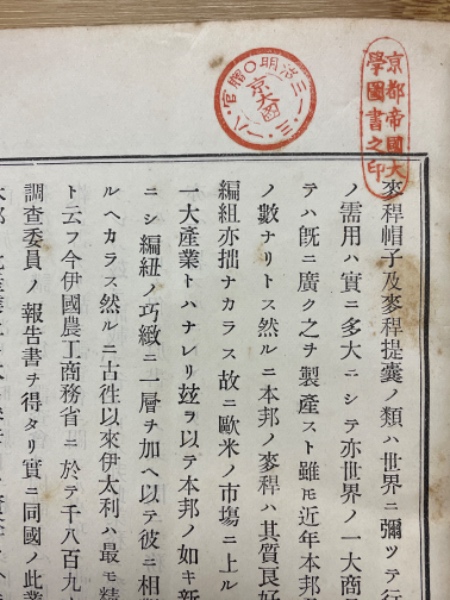 京都帝國大
學圖書之印
官牒〇明治三一・三・一八・
京大圖
麥稈帽子及麥稈提囊ノ類ハ世界ニ彌ツテ行
ノ需用ハ實ニ多大ニシテ亦世界ノ一大商
テハ旣ニ廣ク之ヲ製產スト雖モ近年本邦
ノ數ナリトス然ルニ本邦ノ麥稈ハ其質良好
編組亦拙ナカラス故ニ歐米ノ市場ニ上ル
一大產業トハナレリ玆ヲ以テ本邦ノ如キ新
ニシ編紐ノ巧緻ニ一層チ加ヘ以テ彼ニ相
ルヘカラス然ルニ古徃以來伊太利ハ最モ精
ト云フ今伊國農工商務省ニ於テ千八百九
調查委員ノ報告書チ得タリ實ニ同國ノ此業